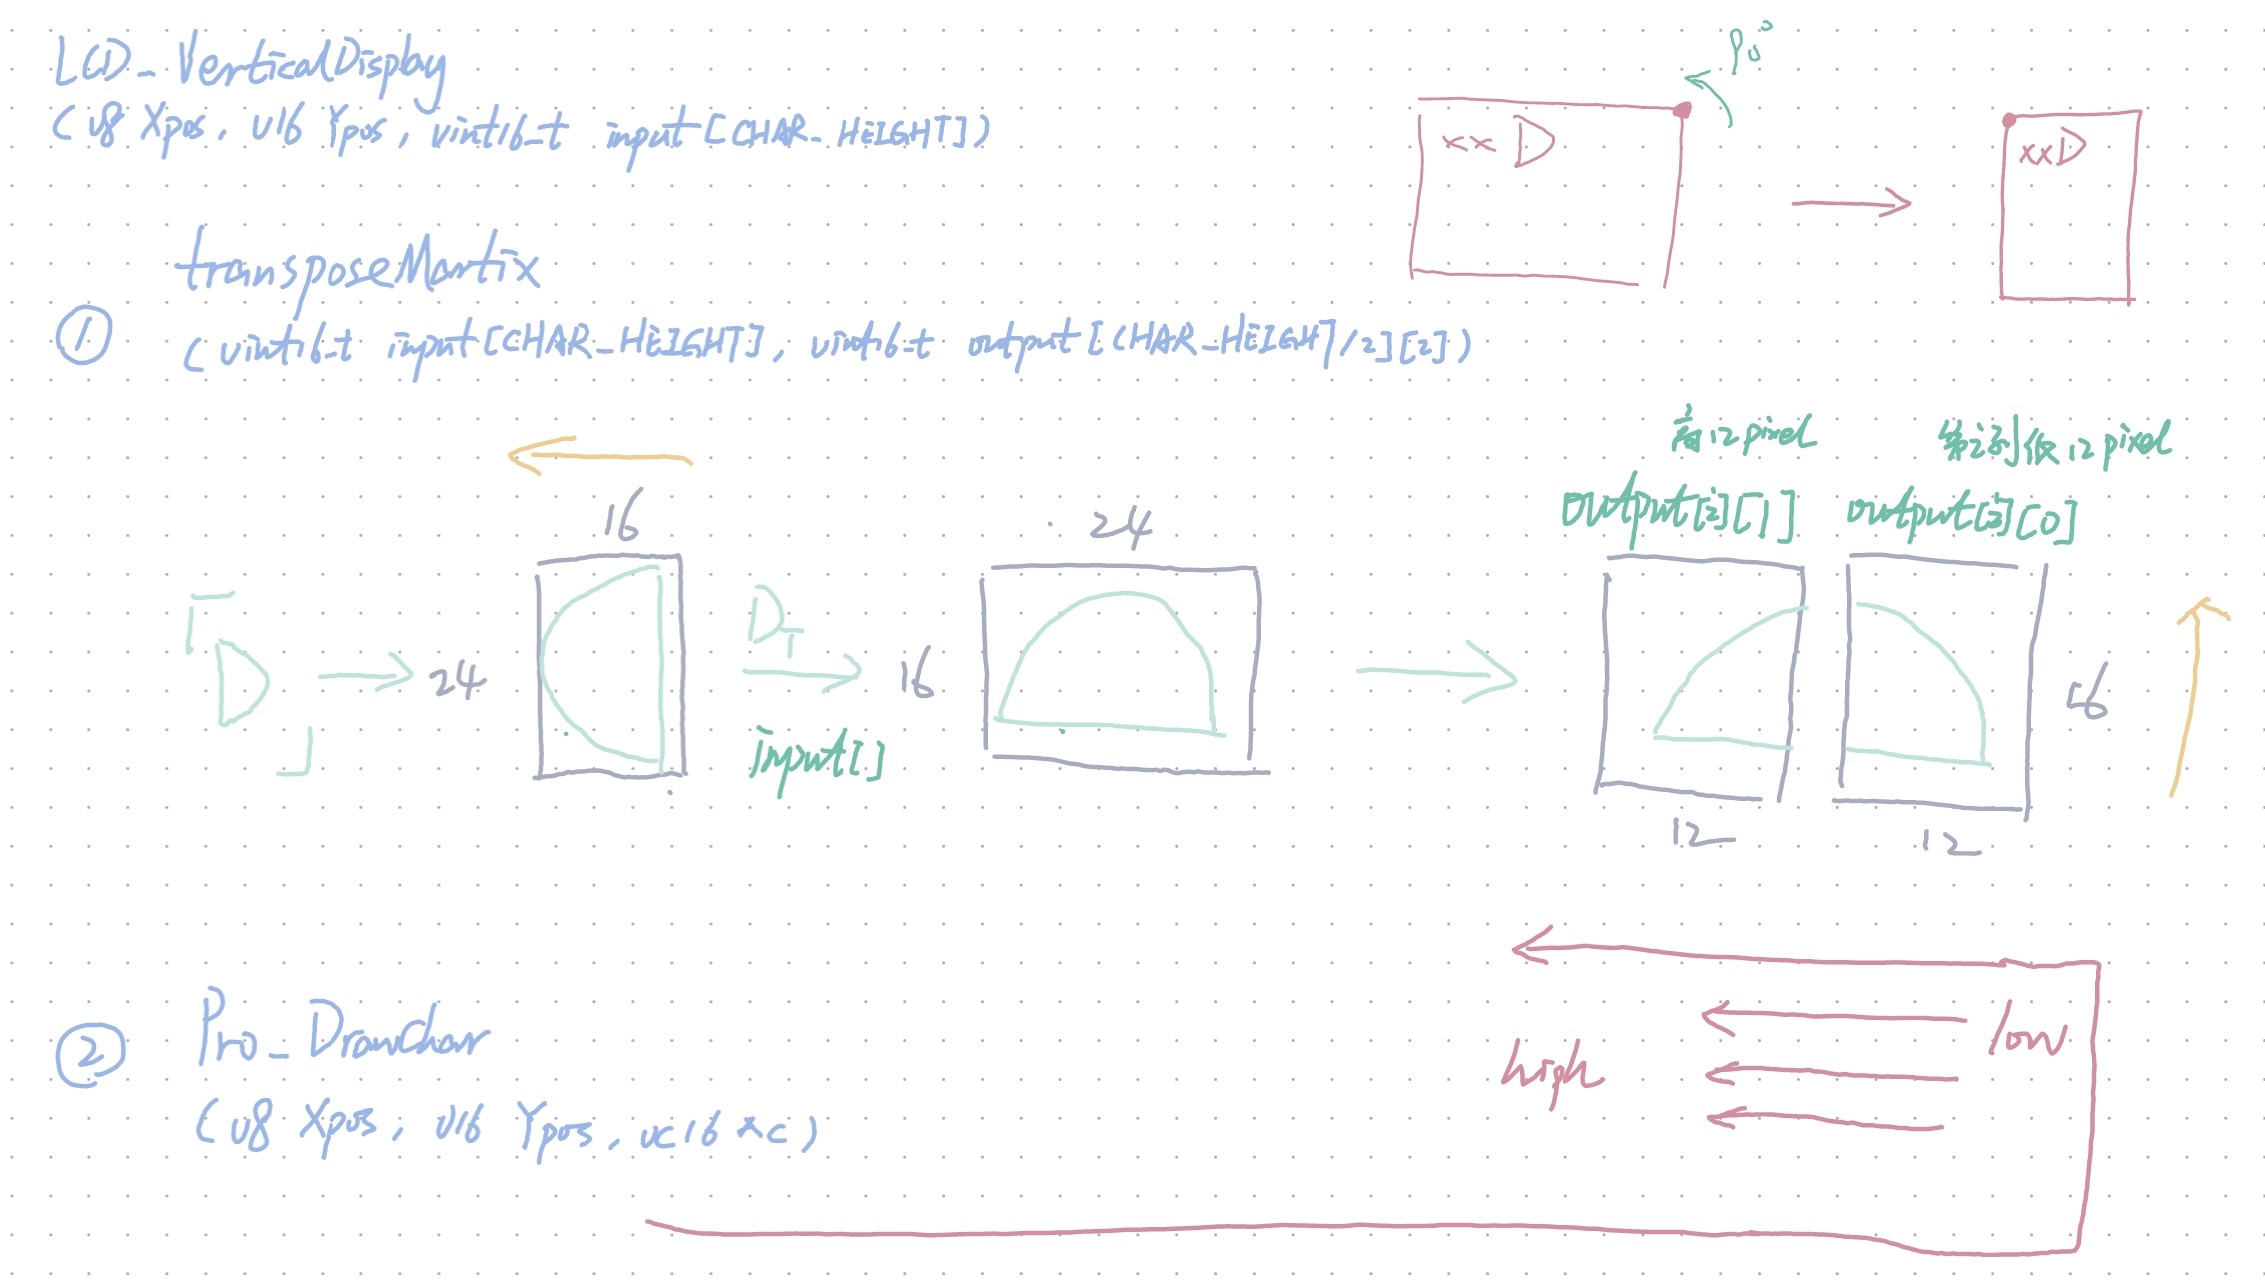 LCD_VerticalDisplay
(u8 Xpos, u16 Ypos, uint16_t input[CHAR_HEIGHT])
90°
xx D
xxD
①
transposeMartix
(uint16_t input[CHAR_HEIGHT], uint16_t output[CHAR_HEIGHT/2][2])
高12pixel
第i列低12pixel
output[i][1]
output[i][0]
16
24
「D」
24
D_T
input[]
16
16
12
12
②
Pro_DrawChar
(u8 Xpos, u16 Ypos, uc16 *c)
high
low